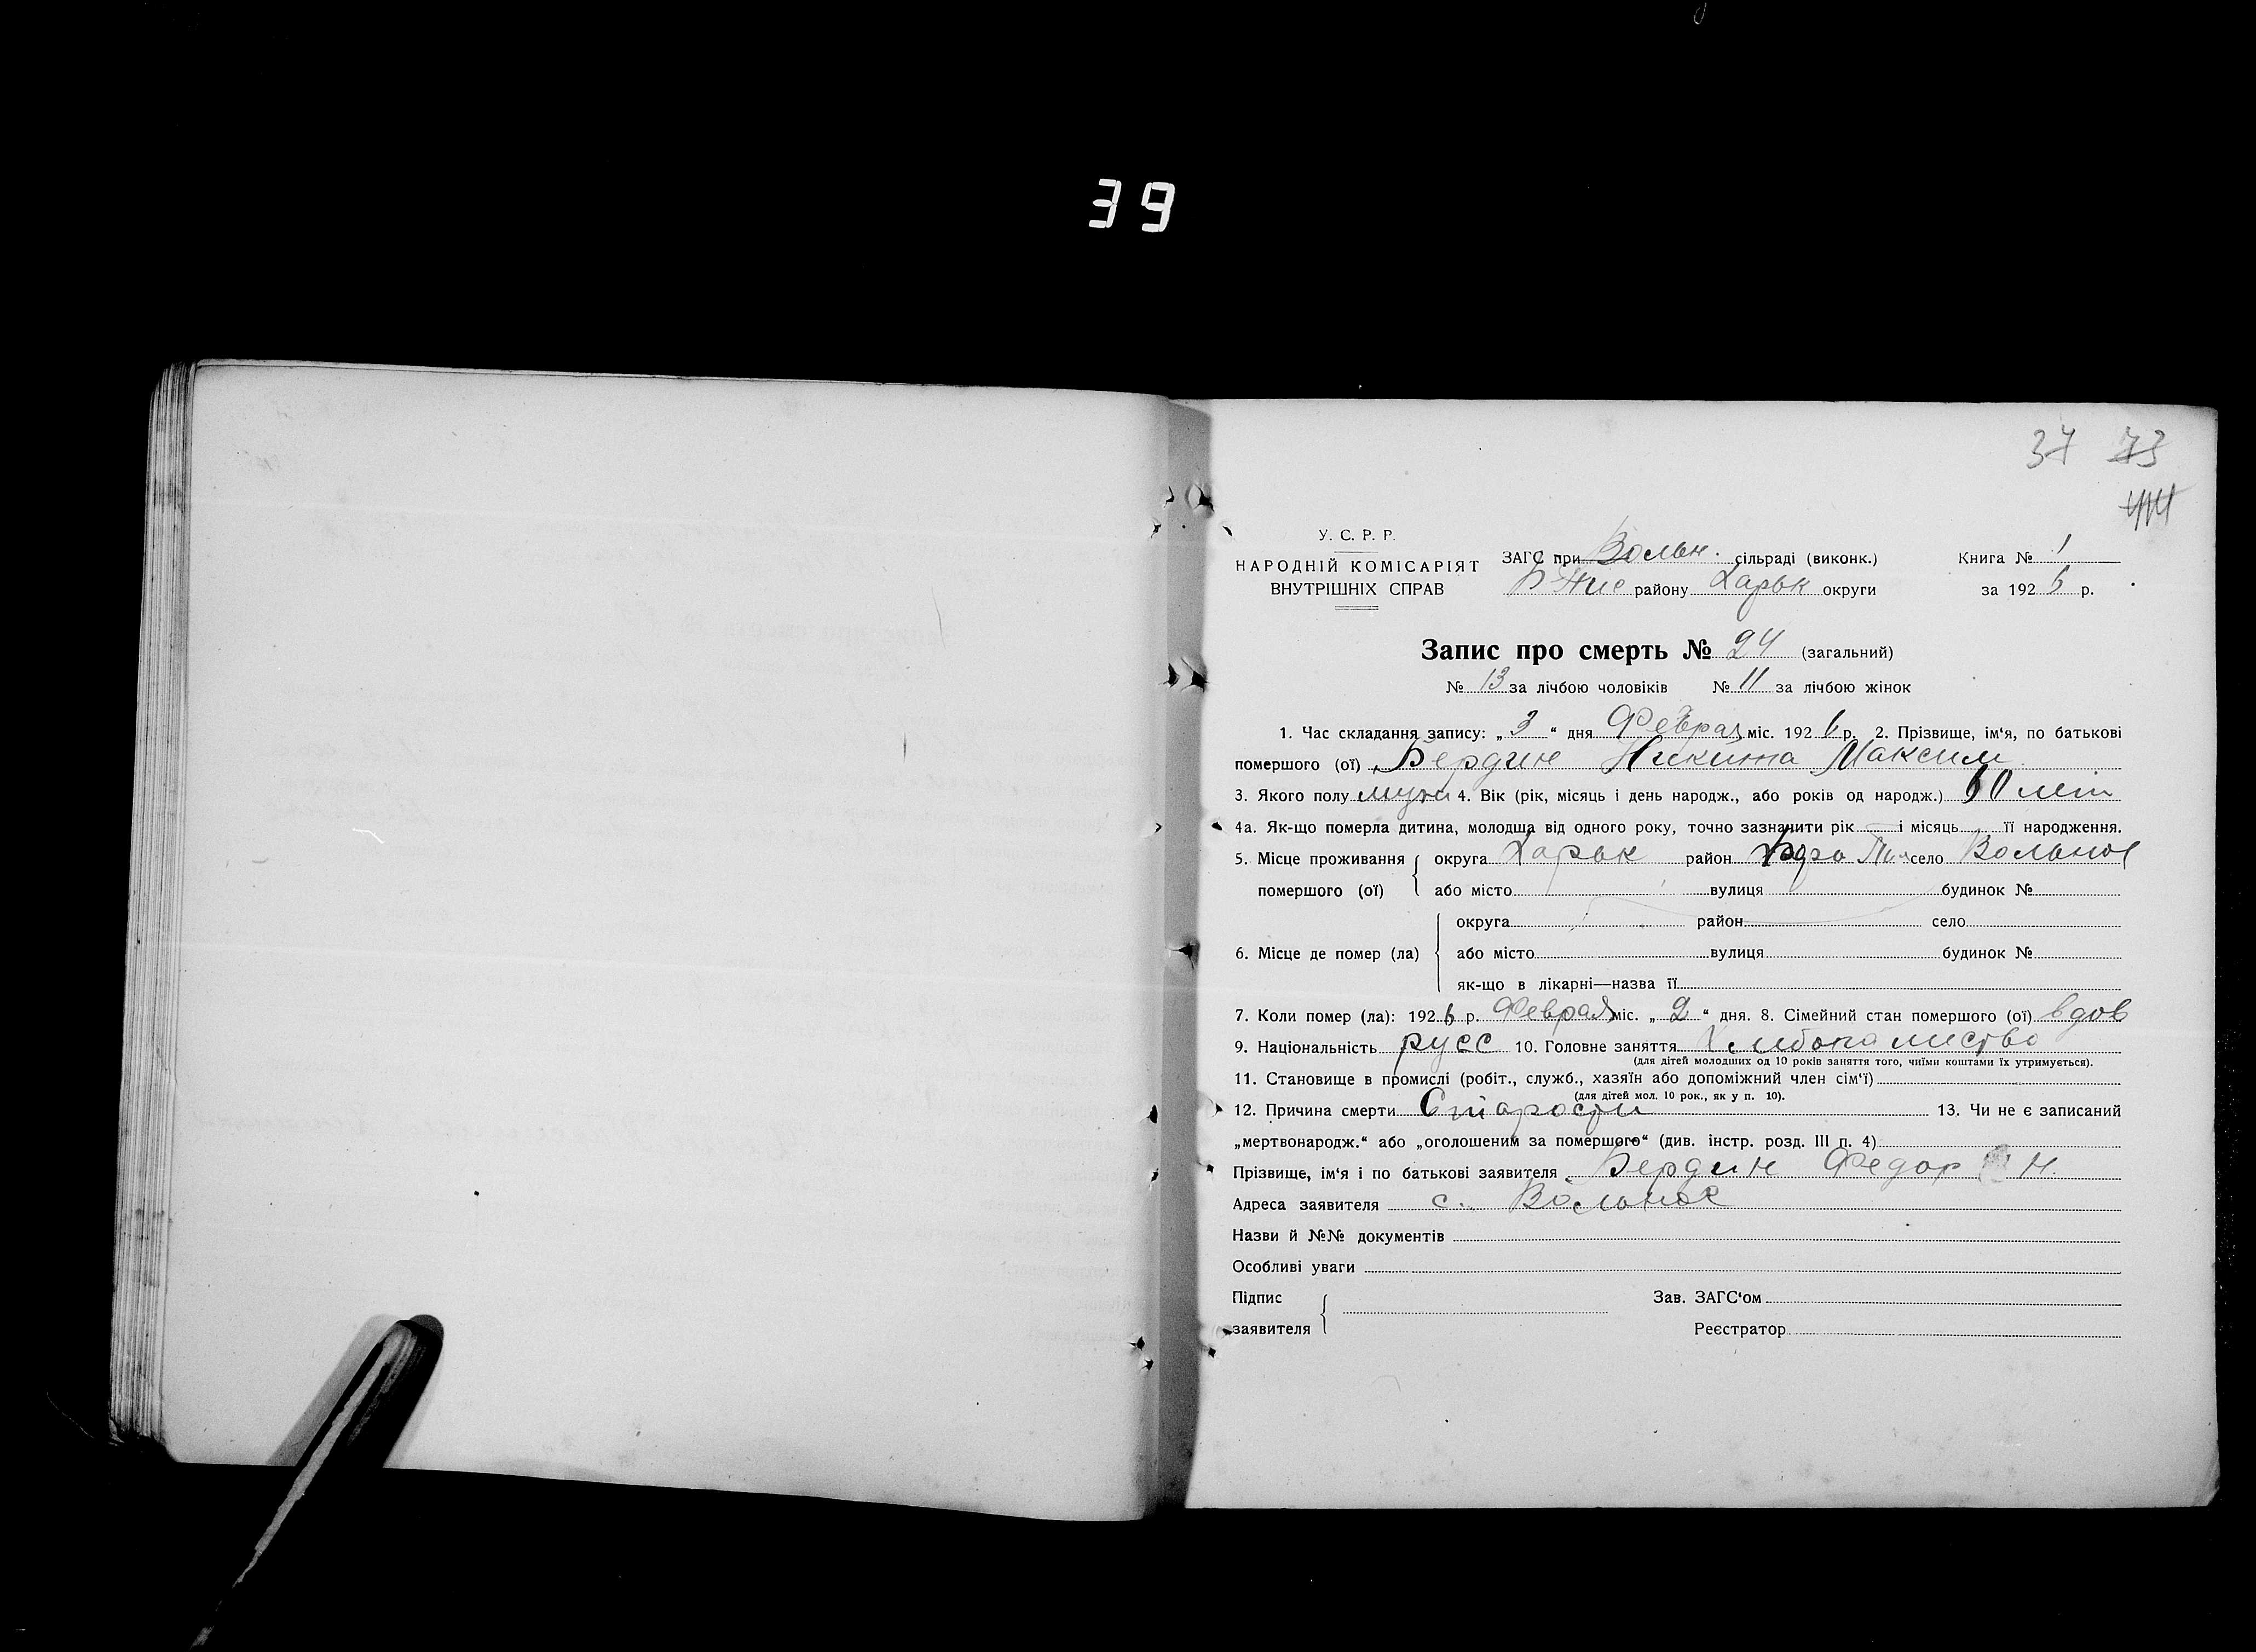 39
37 73
У. С. Р. Р.
НАРОДНІЙ КОМІСАРІЯТ
ВНУТРІШНІХ СПРАВ
ЗАГС при Вольн. сільраді (виконк.)
району Харьк округи
Книга № 1
за 1926 р.
Запис про смерть № 24 (загальний)
№ 13 за лічбою чоловіків № 11 за лічбою жінок
1. Час складання запису: „3“ дня Феврал міс. 1926 р. 2. Прізвище, ім‘я, по батькові
помершого (ої) Бердин Никита Максим
3. Якого полу муж 4. Вік (рік, місяць і день народж., або років од народж.) 60 лет
4а. Як-що померла дитина, молодша від одного року, точно зазначити рік і місяць її народження.
5. Місце проживання помершого (ої) округа Харьк район село Вольное
або місто вулиця будинок №
6. Місце де помер (ла) округа район село
або місто вулиця будинок №
як-що в лікарні—назва її
7. Коли помер (ла): 1926 р. Феврал міс. „2“ дня. 8. Сімейний стан помершого (ої) вдов
9. Національність русс 10. Головне заняття
(для дітей молодших од 10 років заняття того, чиїми коштами їх утримується).
11. Становище в промислі (робіт., служб., хазяїн або допоміжний член сім‘ї)
(для дітей мол. 10 рок., як у п. 10).
12. Причина смерти Старости 13. Чи не є записаний
„мертвонародж.“ або „оголошеним за помершого“ (див. інстр. розд. III п. 4)
Прізвище, ім‘я і по батькові заявителя Бердин Федор Н.
Адреса заявителя с. Вольное
Назви й №№ документів
Особливі уваги
Підпис заявителя
Зав. ЗАГС‘ом
Реєстратор